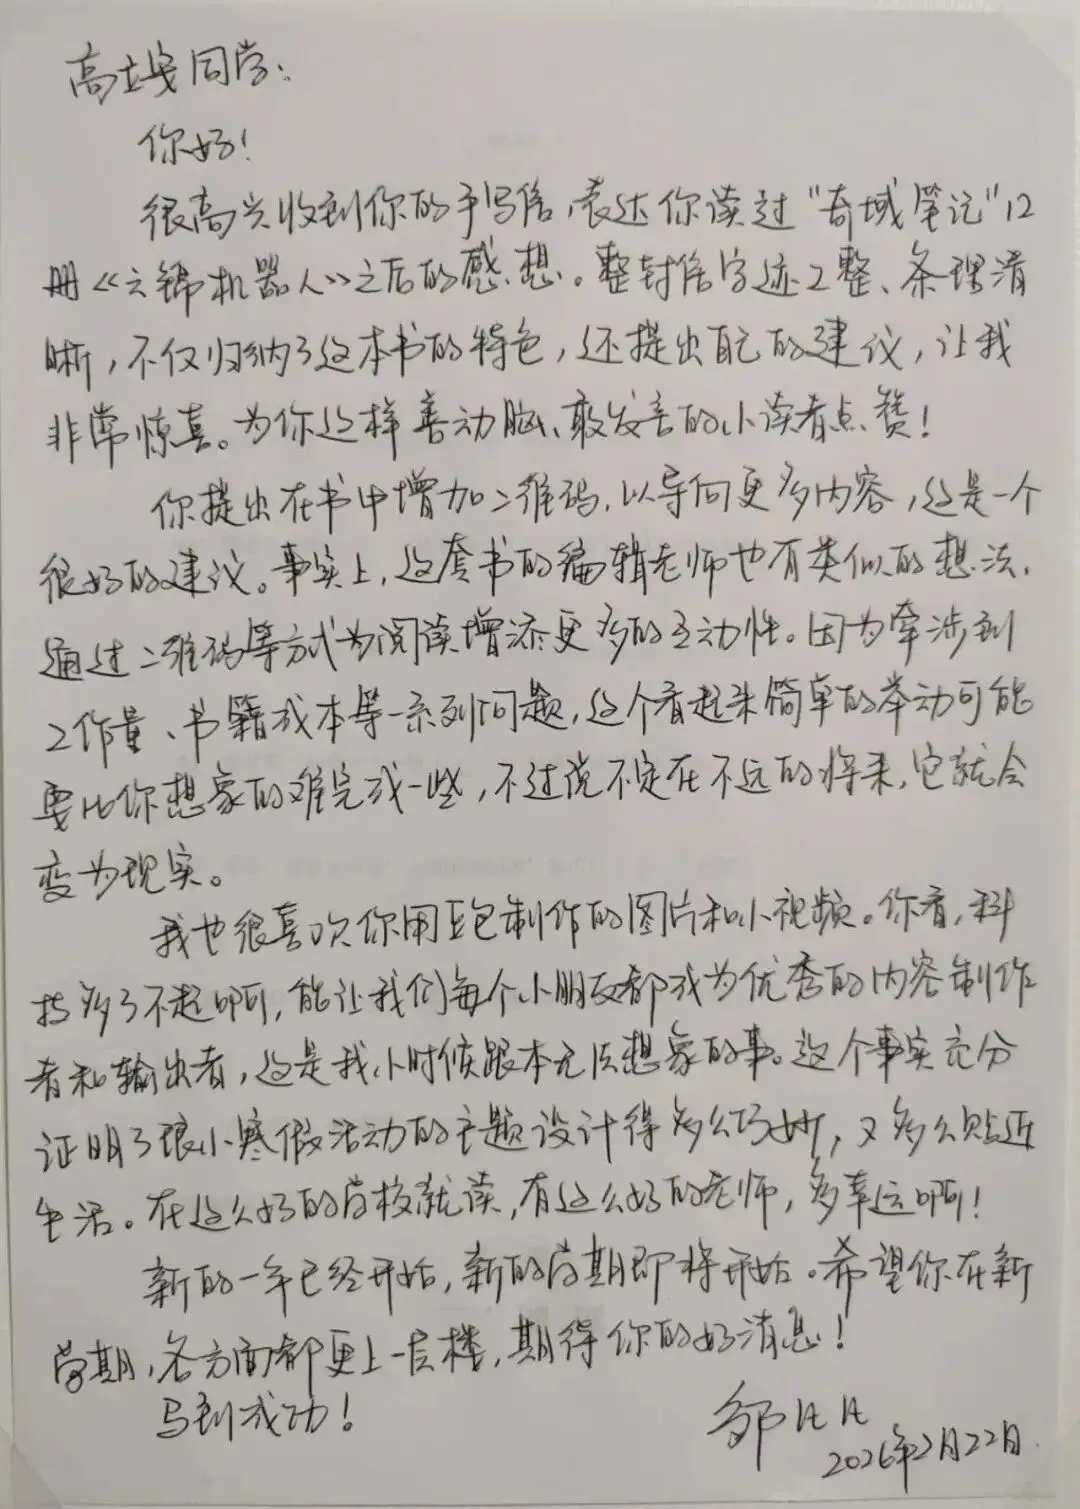 高立安同学：
你好！
很高兴收到你的手写信，表达你读过“奇域笔记”12
册《云锦机器人》之后的感想。整封信字迹工整、条理清
晰，不仅归纳了这本书的特色，还提出自己的建议，让我
非常惊喜。为你这样善动脑、敢发言的小读者点赞！
你提出在书中增加二维码，以导向更多内容，这是一个
很好的建议。事实上，这套书的编辑老师也有类似的想法，
通过二维码等方式为阅读增添更多的互动性。因为牵涉到
工作量、书籍成本等一系列问题，这个看起来简单的举动可能
要比你想象的难完成一些，不过说不定在不远的将来，它就会
变为现实。
我也很喜欢你用豆包制作的图片和小视频。你看，科
技多了不起啊，能让我们每个小朋友都成为优秀的内容制作
者和输出者，这是我小时候跟本无法想象的事。这个事实充分
证明了琅小寒假活动的主题设计得多么巧妙，又多么贴近
生活。在这么好的学校就读，有这么好的老师，多幸运啊！
新的一年已经开始，新的学期即将开始。希望你在新
学期，各方面都更上一层楼，期待你的好消息！
马到成功！
邹凡凡
2026年2月22日